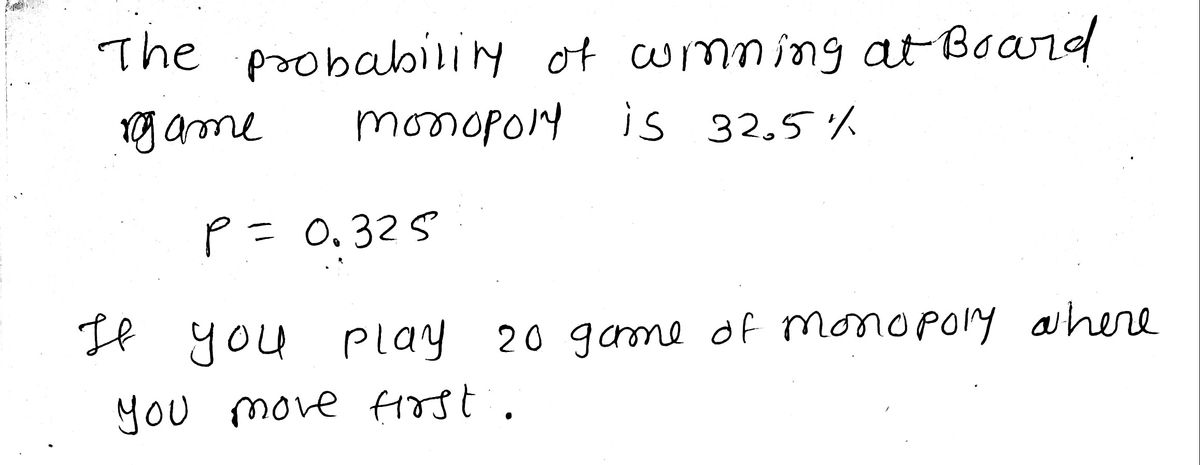 The probability of winning at Board
game monopoly is 32.5%
P = 0.325
If you play 20 game of monopoly where
you move first.